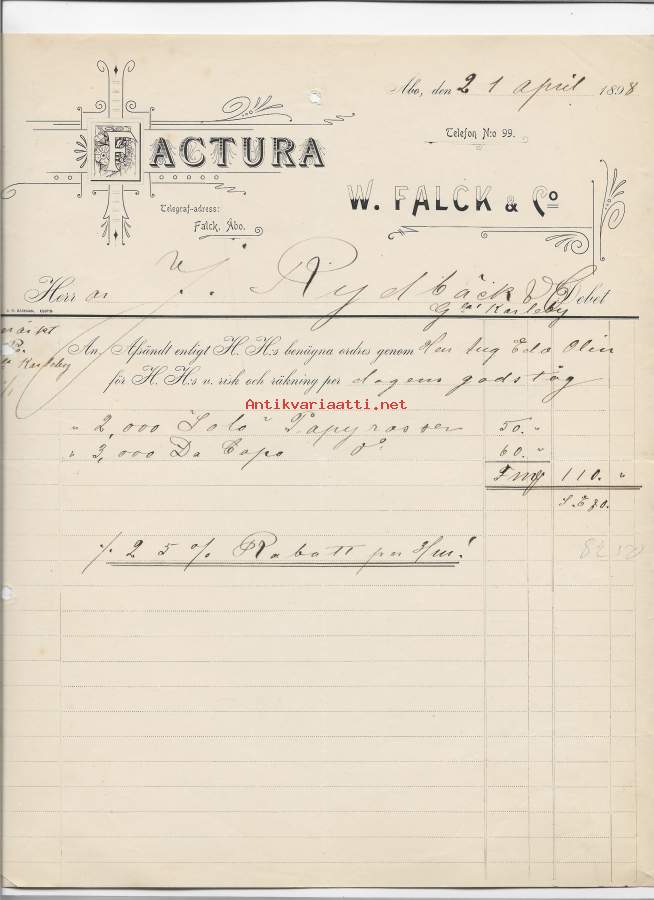 Åbo, den 21 april 1898
FACTURA
Telefon N:o 99.
W. FALCK & Co
Telegraf-adress:
Falck, Åbo.
Herr V. Rydbäck Debet
Gla Karleby
Karleby
An Afsändt enligt H. H:s benägna ordres genom Herr Aug Edv Olin
för H. H:s v. risk och räkning per dagens godståg
Antikvariaatti.net
" 2,000 "Solo" Papyrosser 50. "
" 3,000 Da Capo do 60. "
Fmg 110. "
S. E. & O.
./. 25 % Rabatt per 3/m!
82.50